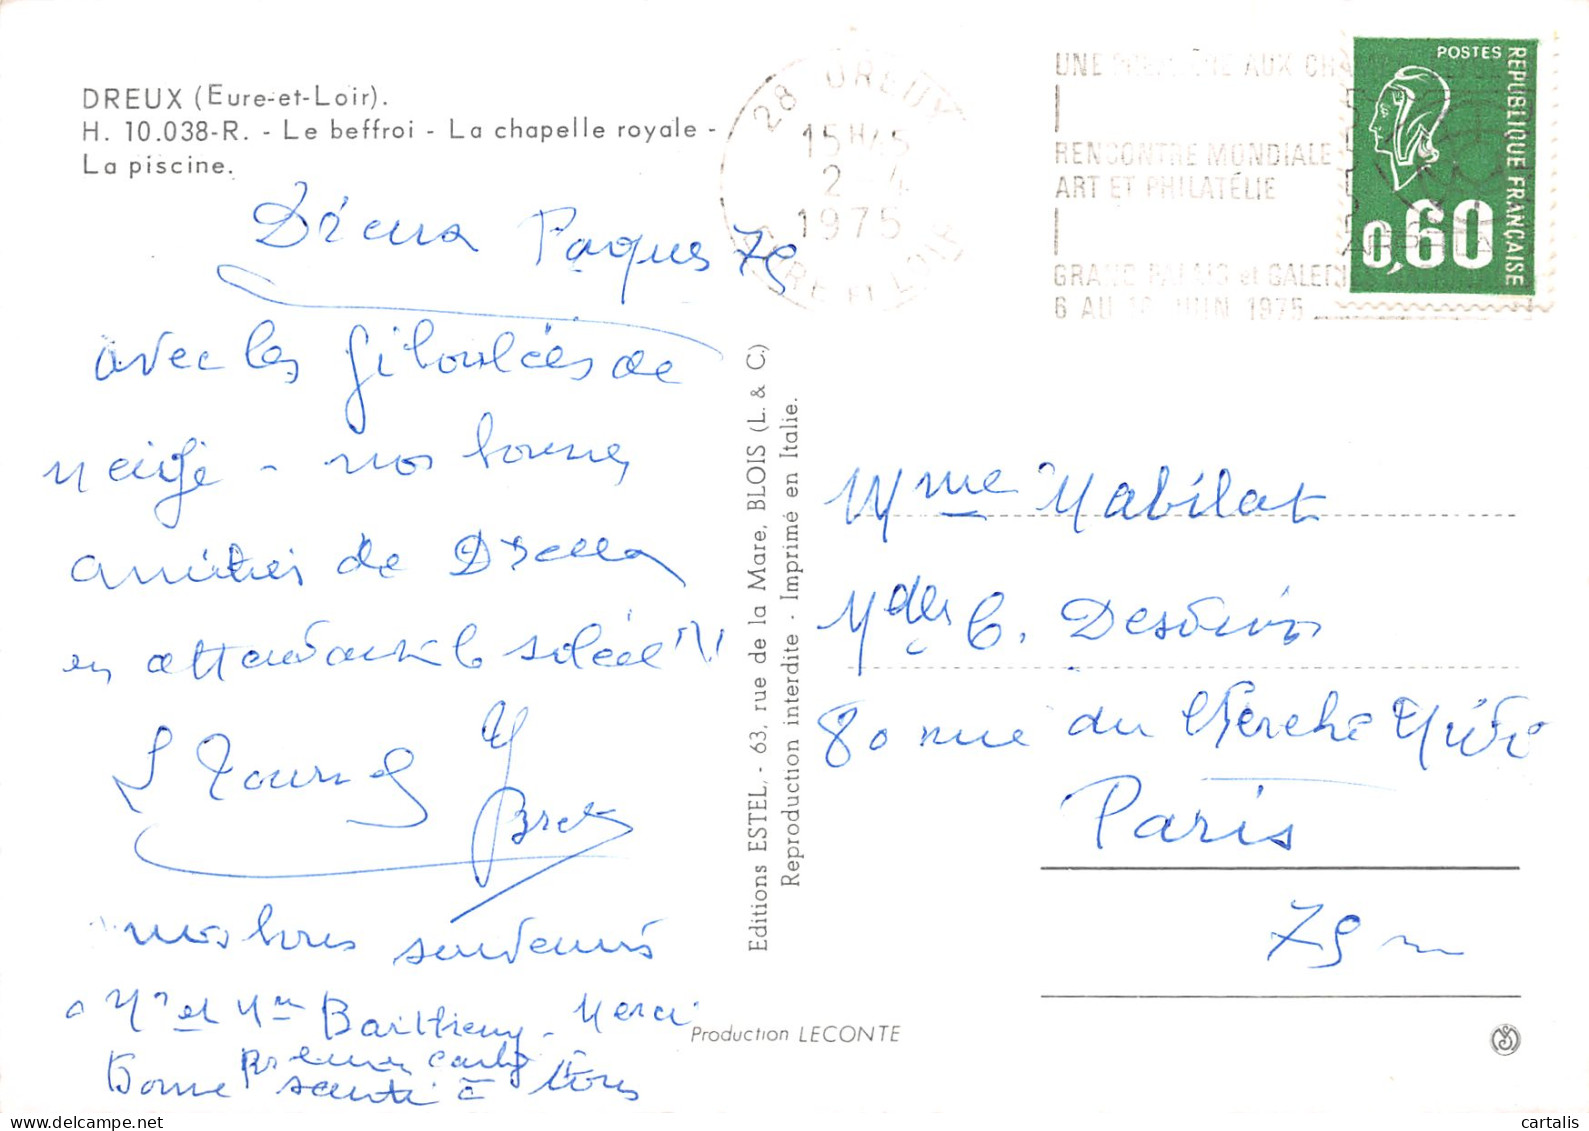 DREUX (Eure-et-Loir).
H. 10.038-R. - Le beffroi - La chapelle royale -
La piscine.
Dreux Paques 75
avec les giboulées de
neige - nos bonnes
amitiés de Dreux
en attendant le soleil !!!
nos bons souvenirs
a Mr et Mme Merci
Bonne santé à tous
Editions ESTEL, - 63, rue de la Mare, BLOIS (L. & C.)
Reproduction interdite - Imprimé en Italie.
28 DREUX
15H45
2-4
1975
EURE ET LOIR
UNE PREMIÈRE AUX CHA
RENCONTRE MONDIALE
ART ET PHILATÉLIE
GRAND PALAIS et GALERI
6 AU 16 JUIN 1975
POSTES
REPUBLIQUE FRANÇAISE
0,60
Mme Mabilat
80 rue du Cherche Midi
Paris
Production LECONTE
cartalis